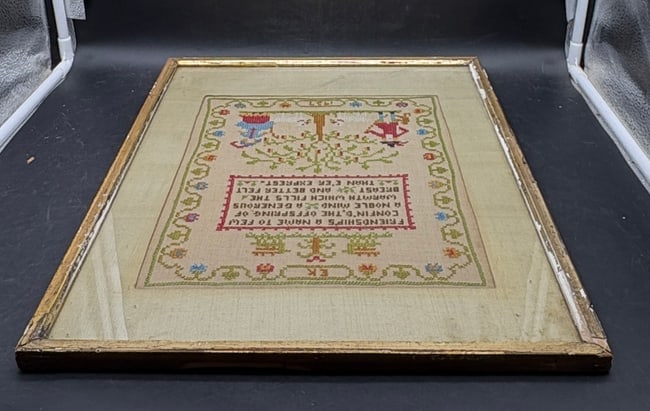 EK
FRIENDSHIP'S A NAME TO FEW
CONFIN'D, THE OFFSPRING OF
A NOBLE MIND A GENEROUS
WARMTH WHICH FILLS THE
BREAST AND BETTER FELT
THAN E'ER EXPREST.